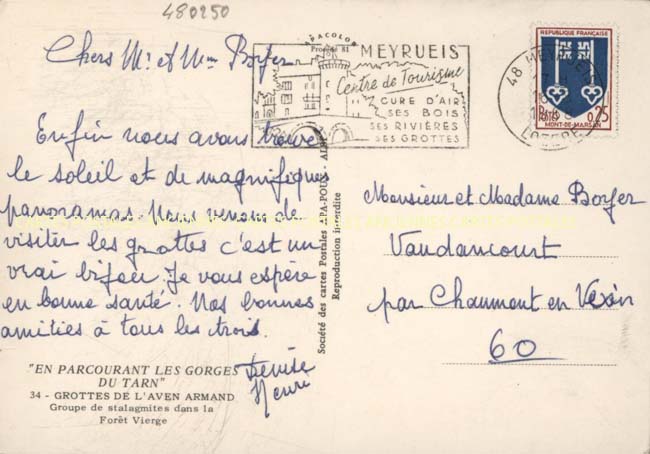 480250
Chers Mr et Mme Boyer
Enfin nous avons trouvé
le soleil et de magnifiques
panoramas. Nous venons de
visiter les grottes c'est un
vrai bijou. Je vous espère
en bonne santé. Nos bonnes
amitiés à tous les trois.
Denise
Henri
"EN PARCOURANT LES GORGES
DU TARN"
34 - GROTTES DE L'AVEN ARMAND
Groupe de stalagmites dans la
Forêt Vierge
APACOLOR
Procédé 81
Société des cartes Postales APA-POUX - ALBI
Reproduction interdite
MEYRUEIS
Centre de Tourisme
CURE D'AIR
SES BOIS
SES RIVIÈRES
SES GROTTES
48 MEYRUEIS
LOZÈRE
REPUBLIQUE FRANÇAISE
0,25
MONT-DE-MARSAN
Monsieur et Madame Boyer
Vaudancourt
par Chaumont en Vexin
60